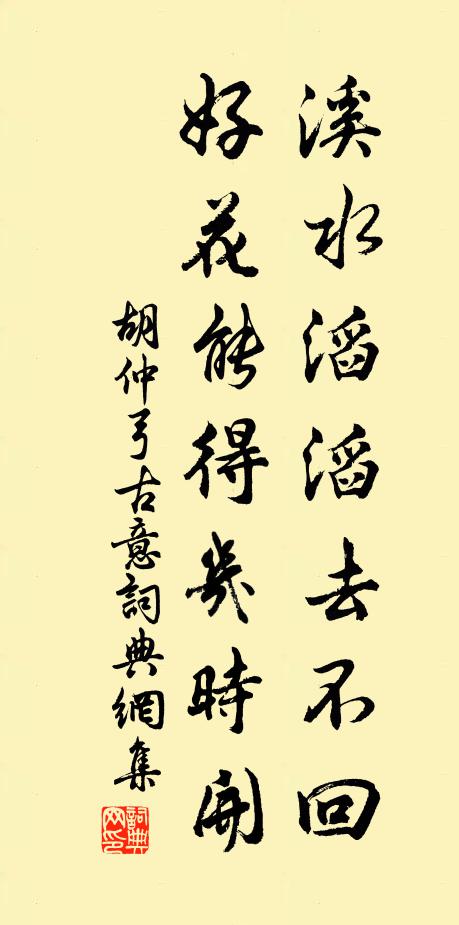 溪水滔滔去不回
好花能得幾時開
胡仲弓古意詞典網集
詞典
网印